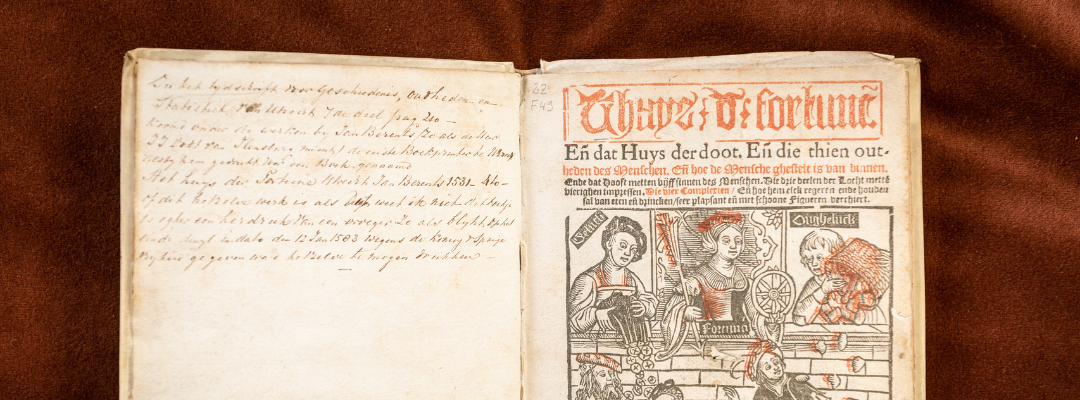 In het tydschrift voor Geschiedenis, Oudheden en
Statistiek van Utrecht 7de deel pag 210 –
komt onder de werken by Jan Berents Ze als de Heer
J J Dodt van Flensburg meent de eerste Boekprinter te Utrecht
gedrukt was een Boek, genaamd
Het huys der Fortune Utrecht Jan Berents 1531 – 4to –
of dit hetzelve werk is als weet ik niet
is echter een herdruk van een vroeger Ze als blykt, op het
einde in dato den 12 Jan 1583 wegens de Koning v Spanje
gegeven was hetzelve te mogen drukken –
32
F 43
Thuys d' fortunē
Eñ dat Huys der doot. Eñ die thien out-
heden des Menschen. Eñ hoe de Mensche ghestelt is van binnen.
Ende dat Hooft metten vijff sinnen des Menschen. Die drie deelen der Locht mette
vierighen impressen. Die vier Complexien / Eñ hoe hem elck regeren ende houden
sal van eten eñ drincken / seer playsant eñ met schoone Figueren verchiert.
Gelück
Fortuna
Ungheluck